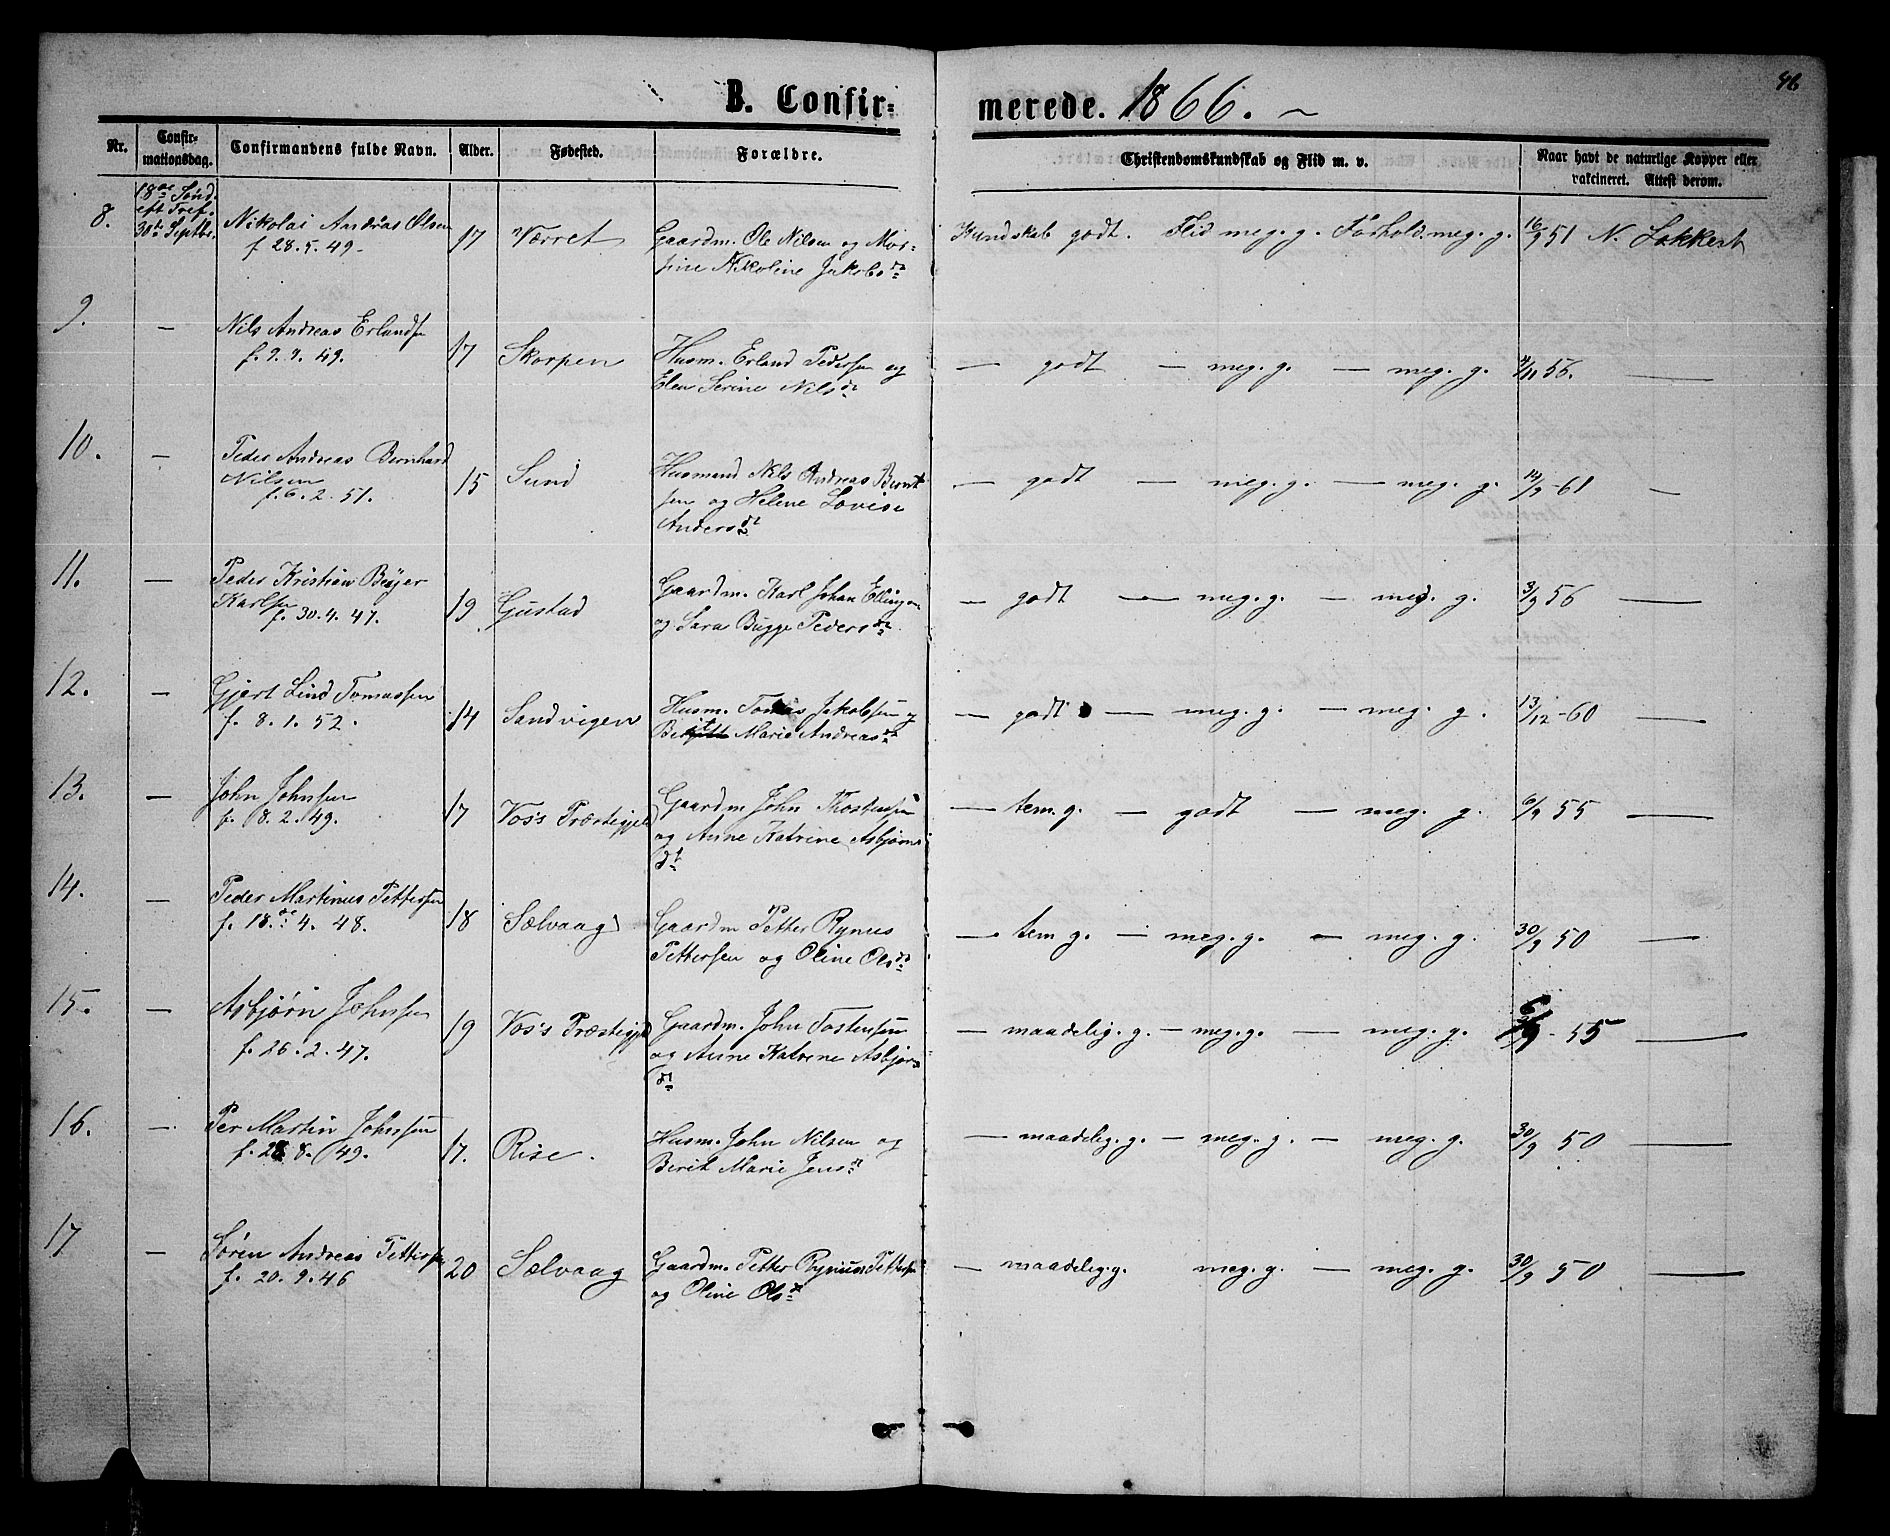 46
B. Confir-
merede. 1866. ~
Nr.
Confir-
mationsdag.
Confirmandens fulde Navn.
Alder.
Fødested.
Forældre.
Christendomskundskab og Flid m. v.
Naar havt de naturlige Kopper eller
vakcineret. Attest derom.
18de Sønd.
eft Tref.
30te Septbr.
8. Nikolai Andrias Olsen 17 Værret Gaardm. Ole Nilsen og Mor- Kundskab godt. Flid meg. g. Forhold meg. g. 16/9 51 N. Lokkert
f 28. 5. 49. sine Nikoline Jakobsdt
9. — Nils Andreas Erlandsen 17 Skorpen Husm. Erland Pedersen og — godt — meg. g. — meg. g. 56. —
f. 9. 9. 49. Elen Serine Nilsdt
10. — Peder Andreas Bernhard 15 Sund Husmand Nils Andreas Bernt — godt — meg. g. — meg. g. 14/9-61 —
Nilsen sen og Helene Lovise
f. 6. 2. 51. Andersdt
11. — Peder Kristian Beyer 19 Gustad Gaardm. Karl Johan Ellingsen — godt — meg. g. — meg. g. 3/9 56 —
Karlsen og Sara Bugge Pedersdt
f. 30. 4. 47.
12. — Gjert Lind Tomassen 14 Sandvigen Husm. Tomas Jakobsen og — godt — meg. g. — meg. g. 13/12-60 —
f. 8. 1. 52. Marie Andreasdt
13. — John Johnsen 17 Vos's Præstegjeld Gaardm John Thostensen — tem. g. — godt — meg. g. 6/9 55 —
f. 8. 2. 49. og Anne Katrine Asbjørns
dt
14. — Peder Martinus Pettersen 18 Sælvaag Gaardm Petter Rynus — tem g. — meg. g. — meg. g. 30/9 50 —
f. 18de 4. 48. Pettersen og Oline Olsdt
15. — Asbjørn Johnsen 19 Vos's Præstegjeld Gaardm. John Tostensen — maadelig. g. — meg. g. — meg. g. 6/9-55 —
f. 26. 2. 47. og Anne Katrine Asbjørns
dt
16. — Per Martin Johnsen 17. Rise. Husm. John Nilsen og — maadelig. g. — meg. g. — meg. g. 30/9 50 —
f. 28 8. 49. Berit Marie Jensdt
17 — Søren Andreas Pettersen 20 Sælvaag Gaardm. Petter Rynus Pettersen — maadelig. g. meg. g. — meg. g. 30/9 50 —
f. 20. 9. 46 og Oline Olsdt